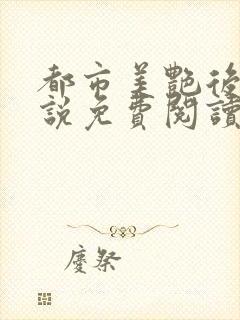 都市美艷後
說免費閱讀
慶祭